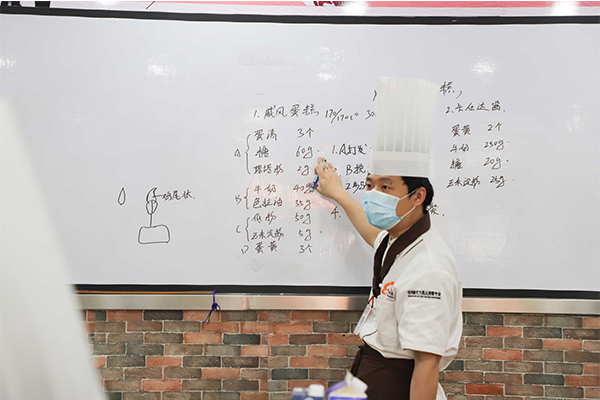 糕
1.威风蛋糕 170/170c° 30
A
蛋清 3个
糖 60g
塔塔粉 2g
B
牛奶 40g
色拉油 35g
C
低粉 50g
玉米淀粉 5g
D 蛋黄 3个
1.A打发
B搅
鸡尾状
2.卡仕达酱
蛋黄 2个
牛奶 250g
糖 20g
玉米淀粉 25g